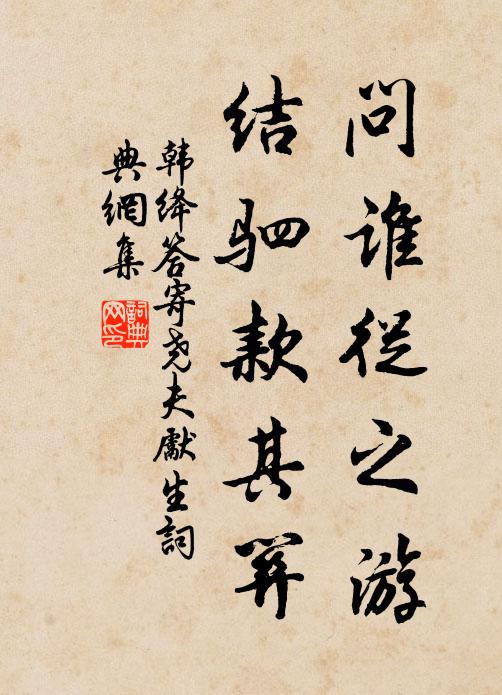 问谁從之游
结驷款其关
韩绛答寄尧夫獻生詞
典網集
詞典
网印